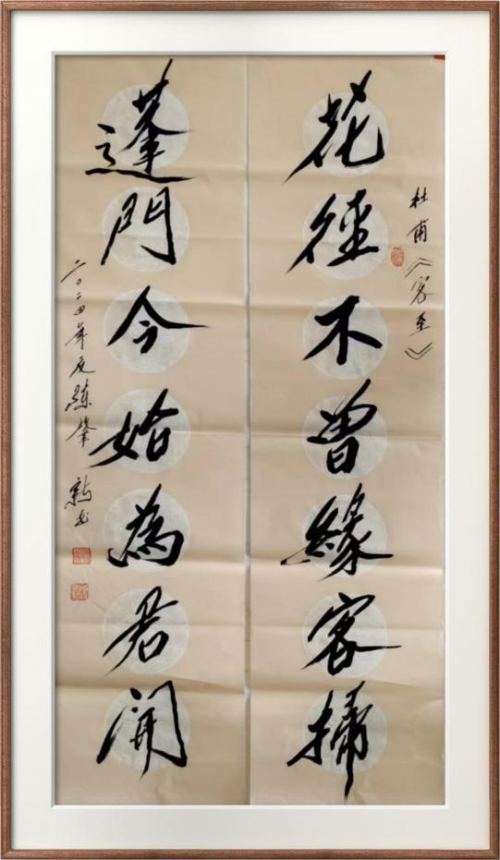 杜甫《客至》
花徑不曾緣客掃
蓬門今始為君開
二〇二四年夏練肇新书